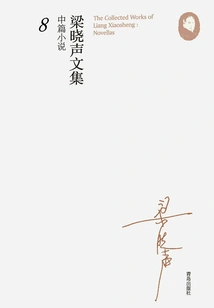 The Collected Works of
Liang Xiaosheng :
Novellas
梁晓声文集
中篇小说
8
梁晓声
青岛出版社